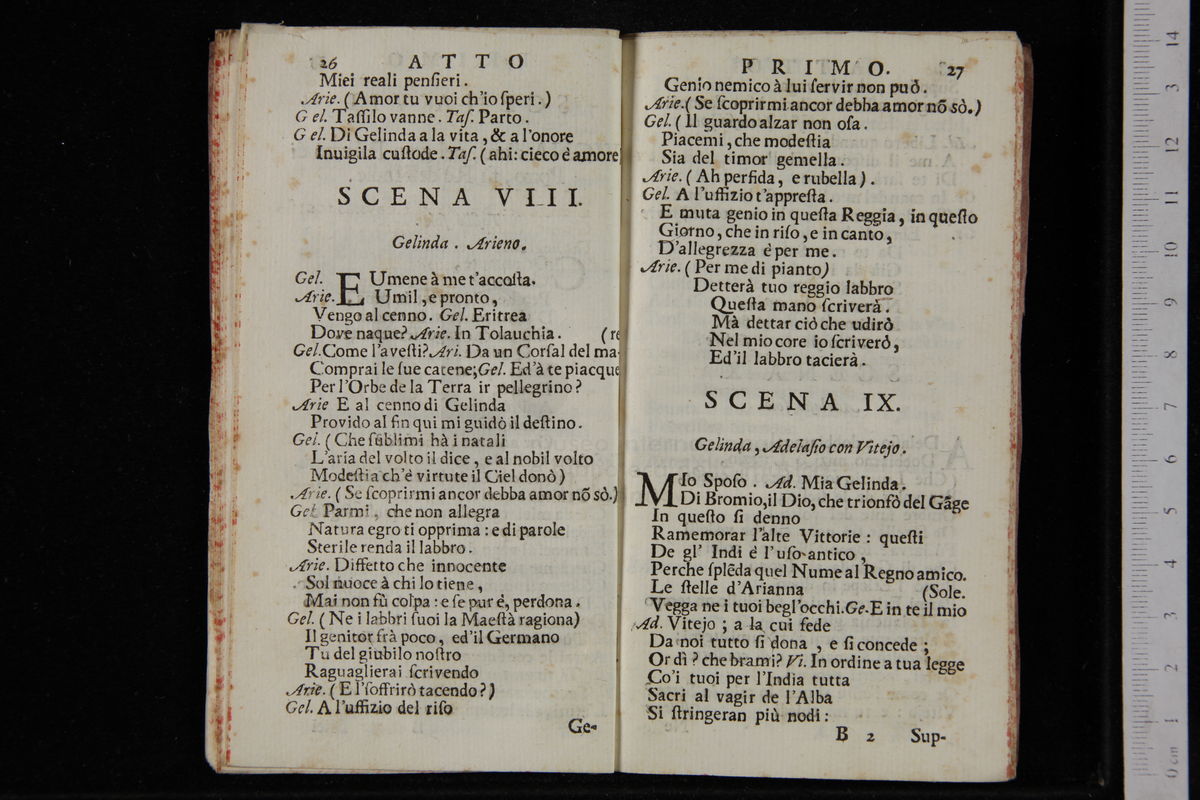 26 ATTO
Miei reali penſieri.
Arie. (Amor tu vuoi ch'io ſperi.)
G el. Taſſilo vanne. Taſ. Parto.
G el. Di Gelinda a la vita, & a l'onore
Inuigila cuſtode. Taſ. (ahi: cieco è amore
SCENA VIII.
Gelinda. Arieno.
Gel. EUmene à me t'accoſta.
Arie. Umil, e pronto,
Vengo al cenno. Gel. Eritrea
Dove naque? Arie. In Tolauchia. (re
Gel. Come l'aveſti? Ari. Da un Corſal del ma-
Comprai le ſue catene; Gel. Ed'à te piacque
Per l'Orbe de la Terra ir pellegrino?
Arie E al cenno di Gelinda
Provido al fin qui mi guidò il deſtino.
Gel. (Che ſublimi hà i natali
L'aria del volto il dice, e al nobil volto
Modeſtia ch'è virtute il Ciel donò)
Arie. (Se ſcoprirmi ancor debba amor nõ sò.)
Gel. Parmi, che non allegra
Natura egro ti opprima: e di parole
Sterile renda il labbro.
Arie. Diffetto che innocente
Sol nuoce à chi lo tiene,
Mai non fù colpa: e ſe pur è, perdona.
Gel. (Ne i labbri ſuoi la Maeſtà ragiona)
Il genitor frà poco, ed'il Germano
Tu del giubilo noſtro
Raguaglierai ſcrivendo
Arie. (E l'ſoffrirò tacendo?)
Gel. A l'uffizio del riſo
Ge-
PRIMO. 27
Genio nemico à lui ſervir non può.
Arie. (Se ſcoprirmi ancor debba amor nõ sò.)
Gel. (Il guardo alzar non oſa.
Piacemi, che modeſtia
Sia del timor gemella.
Arie. (Ah perfida, e rubella).
Gel. A l'uffizio t'appreſta.
E muta genio in queſta Reggia, in queſto
Giorno, che in riſo, e in canto,
D'allegrezza è per me.
Arie. (Per me di pianto)
Detterà tuo reggio labbro
Queſta mano ſcriverà.
Mà dettar ciò che udirò
Nel mio core io ſcriverò,
Ed'il labbro tacierà.
SCENA IX.
Gelinda, Adelaſio con Vitejo.
MIo Spoſo. Ad. Mia Gelinda.
Di Bromio, il Dio, che trionfò del Gãge
In queſto ſi denno
Ramemorar l'alte Vittorie: queſti
De gl' Indi è l'uſo antico,
Perche ſplẽda quel Nume al Regno amico.
Le ſtelle d'Arianna (Sole.
Vegga ne i tuoi begl'occhi. Ge. E in te il mio
Ad. Vitejo; a la cui fede
Da noi tutto ſi dona, e ſi concede;
Or dì? che brami? Vi. In ordine a tua legge
Co'i tuoi per l'India tutta
Sacri al vagir de l'Alba
Si ſtringeran più nodi:
B 2 Sup-
0 cm 1 2 3 4 5 6 7 8 9 10 11 12 3 14